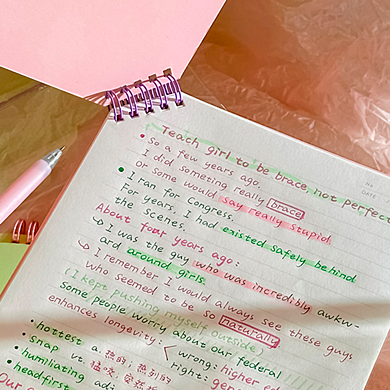 NO.
DATE
Teach girl to be brace, not perfect
So a few years ago.
I did someting really brace
Or some would say really stupid
I ran for Congress.
For years. I had existed safely behind
the scenes.
About four years ago:
I was the guy who was incredibly awkw-
ard around girls.
I remember I would always see these guys
who seemed to be so naturally
(I kept pushing myself outside)
Some people worry about our federal
enhances longevity: wrong: higher
right:
hottest a. 热的; 热烈的
snap vt.
humiliating
headfirst ad
Our